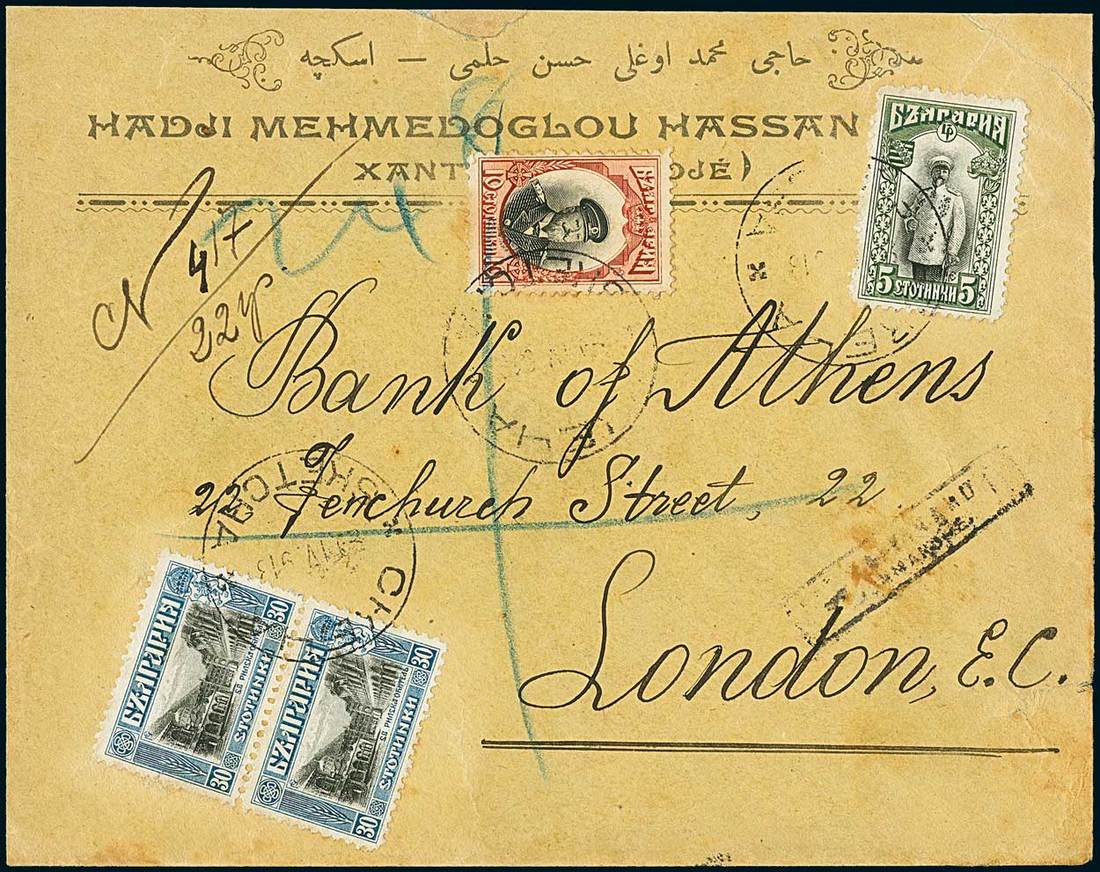 حاجی محمد اوغلی حسن حلمی — اسکچه
HADJI MEHMEDOGLOU HASSAN
XANT DJÉ)
N 417
22
10 СТОТИНКИ 10
БЪЛГАРИЯ
БЪЛГАРИЯ
5 СТОТИНКИ 5
Bank of Athens
22 Fenchurch Street, 22
London, E.C.
БЪЛГАРИЯ
30 СТОТИНКИ 30
БЪЛГАРИЯ
30 СТОТИНКИ 30